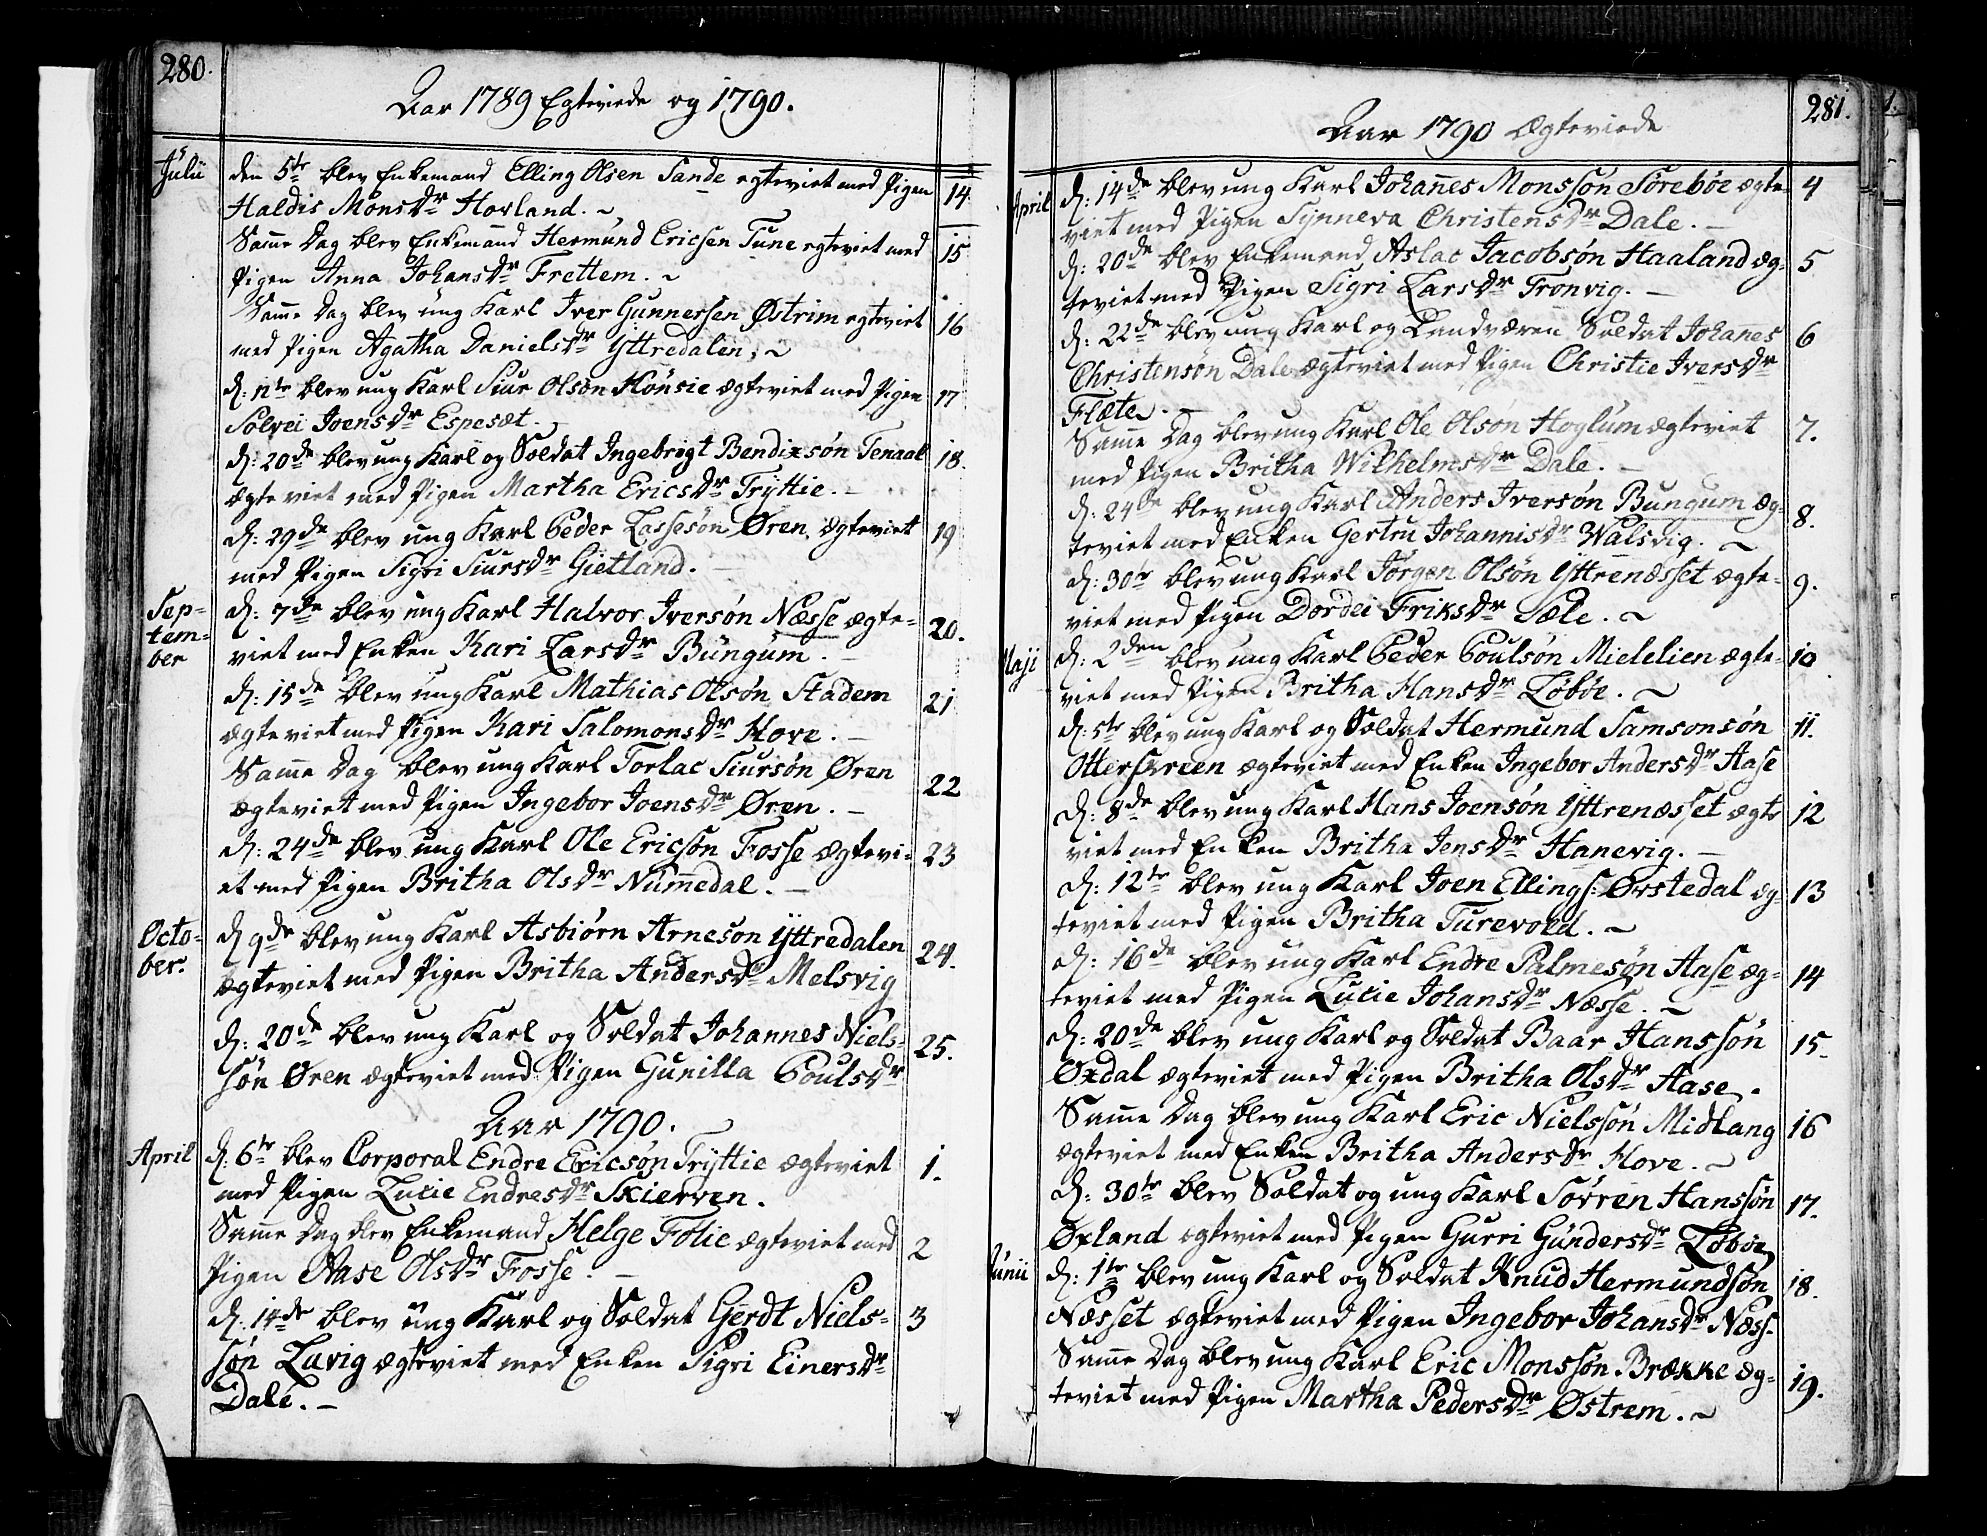 280.
Aar 1789 Egteviede og 1790.
Julii
den 5te blev Enkemand Elling Olsen Sande egteviet med Pigen 14
Haldis MonsDr Hovland. ~
Samme Dag blev Enkemand Hermund Ericsen Tune egteviet med 15
Pigen Anna JohansDr Frettem. ~
Samme Dag blev ung Karl Iver Gunnersen Østrim egteviet 16
med Pigen Agatha DanielsDr Yttredalen. ~
d: 12te blev ung Karl Siur Olsøn Hønsie ægteviet med Pigen 17
Solvei JoensDr Espesæt.
d: 20de blev ung Karl og Soldat Ingebrigt Bendixsøn Tenaal 18.
ægteviet med Pigen Martha EricsDr Tryttie. -
d: 29de blev ung Karl Peder Lassesøn Øren ægteviet 19
med Pigen Sigri SiursDr Gietland. -
Sep-
tem-
ber
d: 7de blev ung Karl Halvor Iversøn Næsse ægte- 20.
viet med Enken Kari LarsDr Bungum. -
d: 15de blev ung Karl Mathias Olsøn Stadem 21
ægteviet med Pigen Kari SalomonsDr Hove. -
Samme Dag blev ung Karl Torlac Siursøn Øren 22
ægteviet med Pigen Ingebor JoensDr Øren. -
d: 24de blev ung Karl Ole Ericsøn Fosse ægtevi- 23
et med Pigen Britha OlsDr Nummedal. -
Octo-
ber.
d 9de blev ung Karl Asbiørn Arneson Yttredalen 24.
ægteviet med Pigen Britha AndersDr Melsvig
d: 20de blev ung Karl og Soldat Johannes Niels- 25.
søn Øren ægteviet med Pigen Gunilla PoulsDr
Aar 1790.
April
d: 6te blev Corporal Endre Ericsøn Tryttie ægteviet 1.
med Pigen Lucie EndresDr Skierven.
Samme Dag blev Enkemand Helge Folie ægteviet med 2
Pigen Aase OlsDr Fosse. -
d: 14de blev ung Karl og Soldat Gerdt Niels- 3
søn Lavig ægteviet med Enken Sigri EinersDr
Dale. -
281.
Aar 1790 Ægteviede
April
d: 14de blev ung Karl Johannes Monssøn Sørebøe ægte- 4
viet med Pigen Synneva ChristensDr Dale. -
d: 20de blev Enkemand Aslac Jacobsøn Haaland æg- 5
teviet med Pigen Sigri LarsDr Tronvig. -
d: 22de blev ung Karl og Landværen Soldat Johanes 6
Christensøn Dale ægteviet med Pigen Christie IversDr
Flæte. -
Samme Dag blev ung Karl Ole Olson Hoglum ægteviet 7.
med Pigen Britha WilhelmsDr Dale. -
d: 24de blev ung Karl Anders Iversøn Bungum æg- 8.
teviet med Enken Gertru JohannisDr Walsvig. ~
d: 30te blev ung Karl Jørgen Olsøn Yttrenæsset ægte- 9.
viet med Pigen Dordei FriksDr Sæle. ~
Maji
d: 2den blev ung Karl Peder Poulsøn Mielelien ægte- 10
viet med Pigen Britha HansDr Løbøe. ~
d: 5te blev ung Karl og Soldat Hermund Samsonsøn 11.
Otterskreen ægteviet med Enken Ingebor AndersDr Aase
d: 8de blev ung Karl Hans Joensøn Yttrenæsset ægte 12
viet med Enken Britha JensDr Hanevig. -
d: 12te blev ung Karl Joen Ellings: Ørstedal æg- 13
teviet med Pigen Britha Turevold. ~
d: 16de blev ung Karl Endre Palmesøn Aase æg- 14
teviet med Pigen Lucie JohansDr Næsse. ~
d: 20de blev ung Karl og Soldat Baar Hanssøn 15.
Øxdal ægteviet med Pigen Britha OlsDr Aase.
Samme Dag blev ung Karl Eric Nielssøn Midlang 16
ægteviet med Enken Britha AndersDr Hove. ~
d: 30te blev Soldat og ung Karl Sørren Hanssøn 17.
Øxland ægteviet med Pigen Gurri GundersDr Løbøe
Junii
d: 1te blev ung Karl og Soldat Knud Hermundsøn 18.
Næsset ægteviet med Pigen Ingebor JohansDr Næss-
Samme Dag blev ung Karl Eric Monssøn Brække æg- 19.
teviet med Pigen Martha PedersDr Østrem. ~